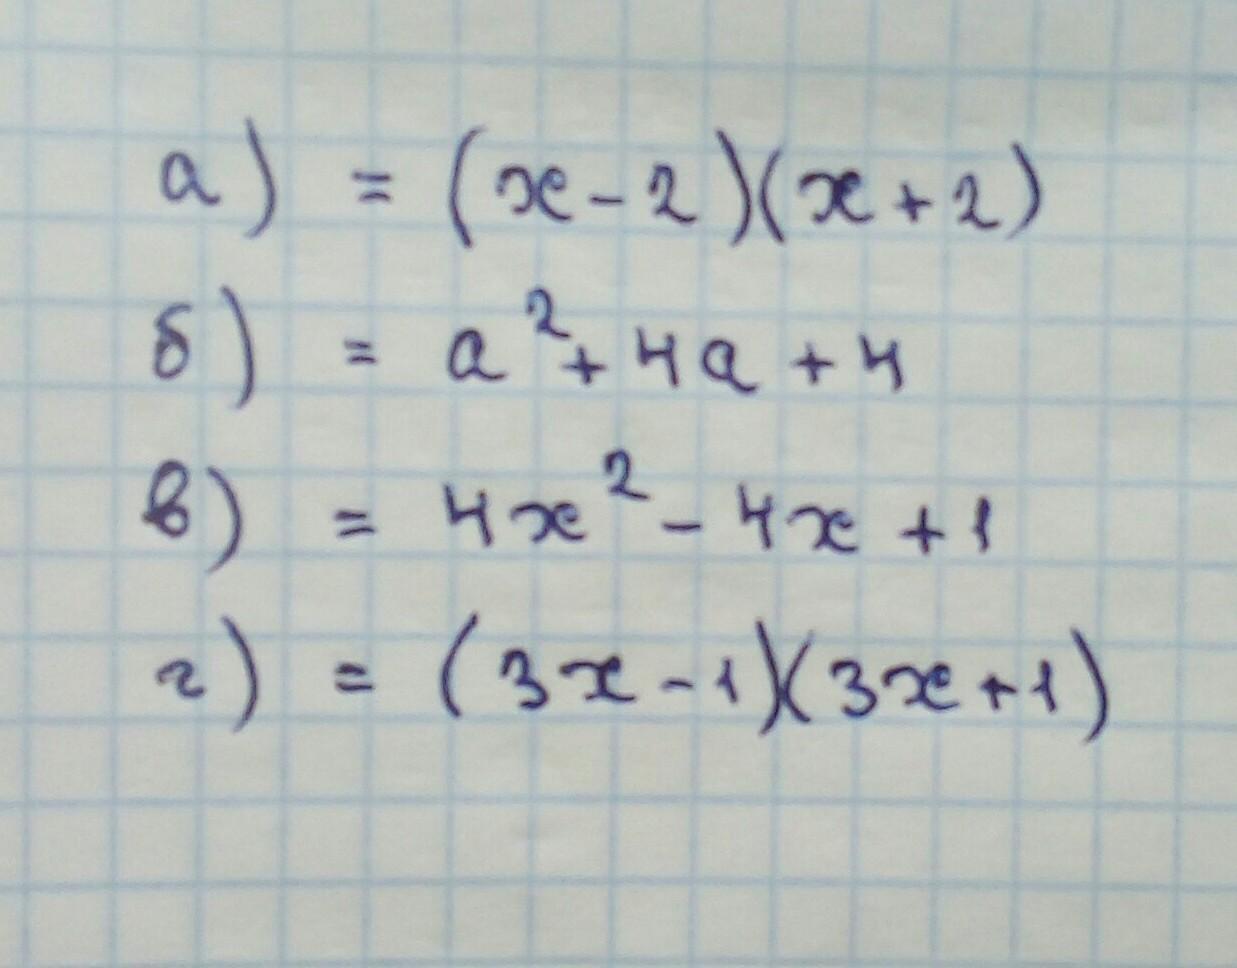 а) = (x-2)(x+2)
б) = a²+4a+4
в) = 4x²-4x+1
г) = (3x-1)(3x+1)